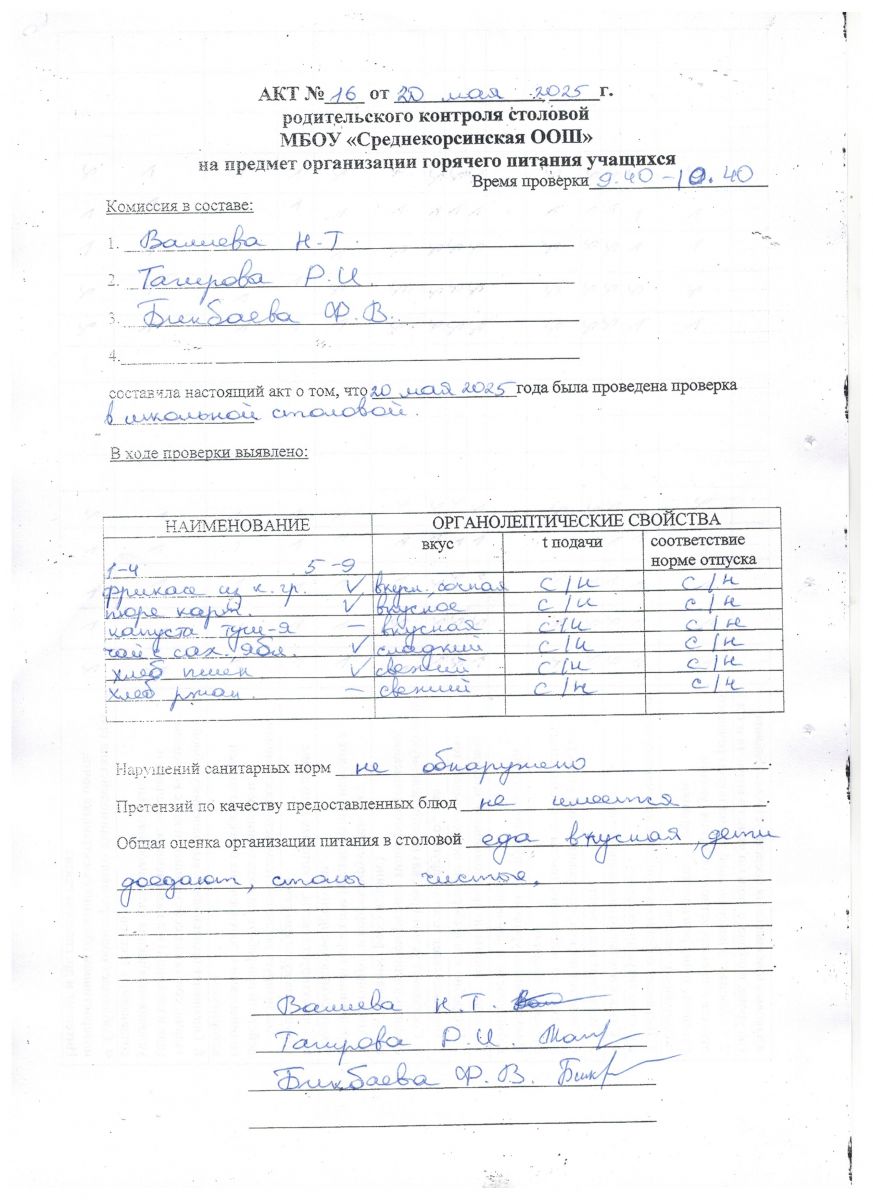 АКТ № 16 от 20 мая 2025 г.
родительского контроля столовой
МБОУ «Среднекорсинская ООШ»
на предмет организации горячего питания учащихся
Время проверки 9.40-10.40
Комиссия в составе:
1. Валиева Н.Т.
2. Тагирова Р.И.
3. Бикбаева Ф.В.
4.
составила настоящий акт о том, что 20 мая 2025 года была проведена проверка
в школьной столовой.
В ходе проверки выявлено:
НАИМЕНОВАНИЕ ОРГАНОЛЕПТИЧЕСКИЕ СВОЙСТВА
вкус t подачи соответствие норме отпуска
1-4 5-9
фрикасе из к. гр. ✓ вкусн. сочная с/н с/н
пюре карт. ✓ вкусное с/н с/н
капуста туш-я – вкусная с/н с/н
чай с сах. ябл. ✓ сладкий с/н с/н
хлеб пшен ✓ свежий с/н с/н
хлеб ржан. – свежий с/н с/н
Нарушений санитарных норм не обнаружено.
Претензий по качеству предоставленных блюд не имеется.
Общая оценка организации питания в столовой еда вкусная, дети
доедают, столы чистые.
Валиева Н.Т.
Тагирова Р.И.
Бикбаева Ф.В.